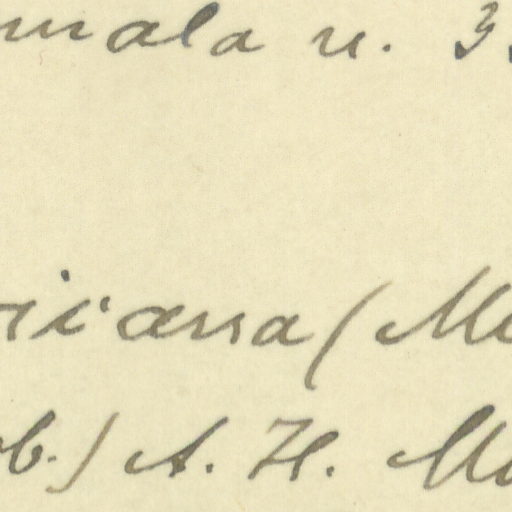 mala n. 3
icana (M
b.) A. H. M